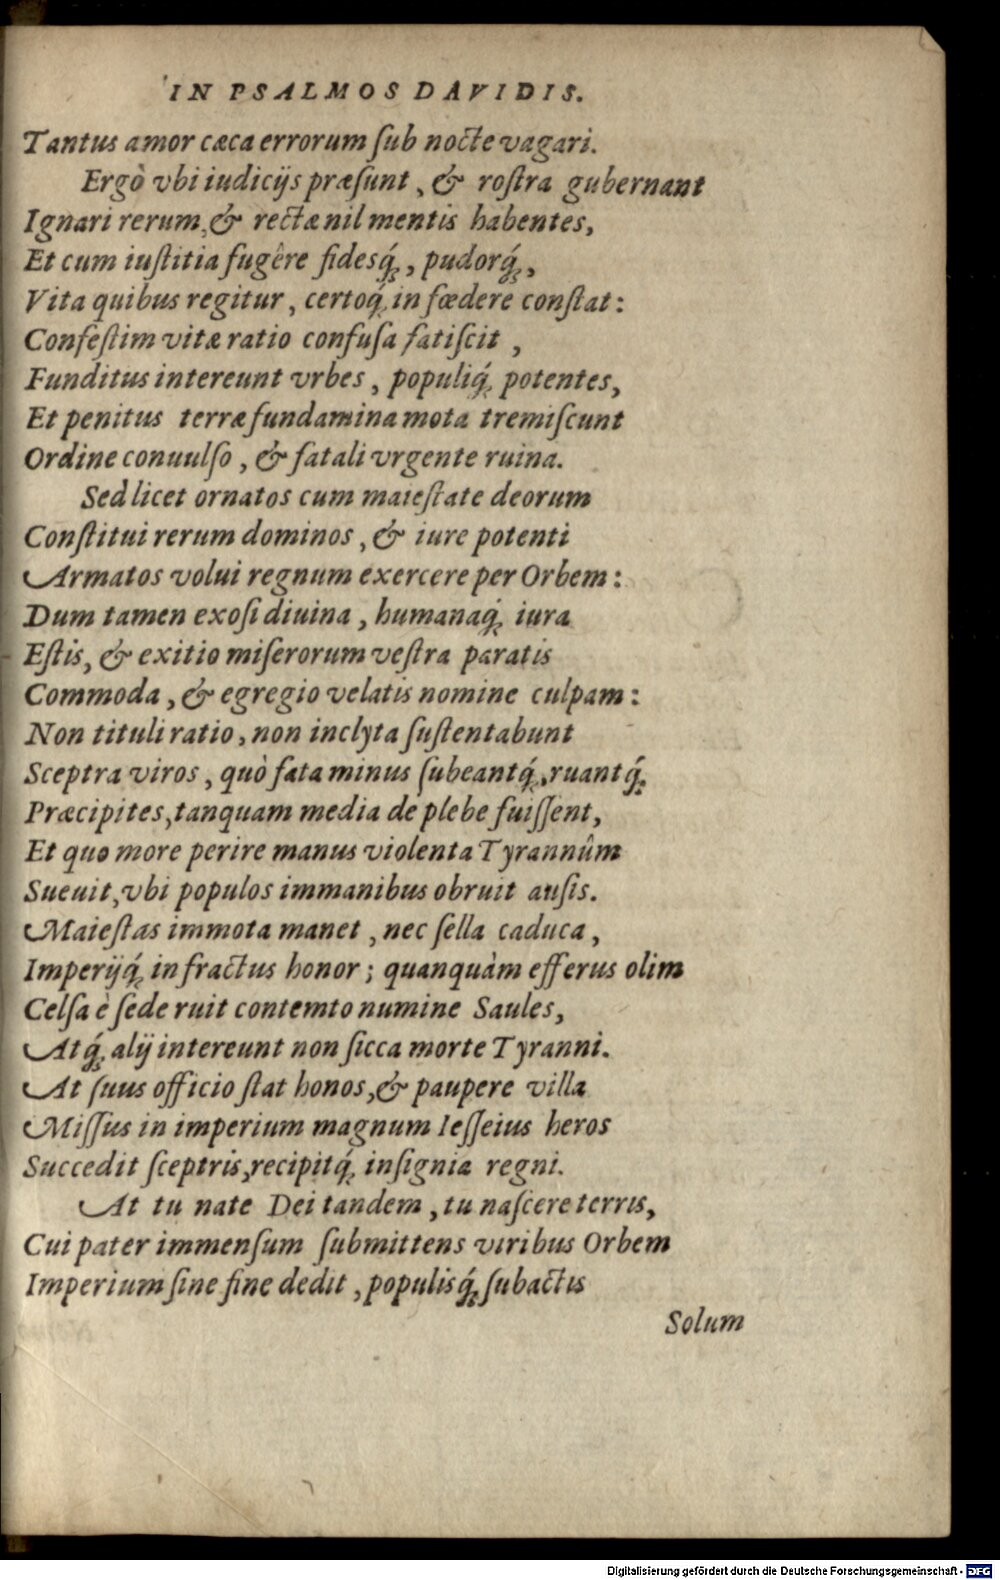 IN PSALMOS DAVIDIS.
Tantus amor cæca errorum ſub nocte vagari.
Ergò vbi iudicijs præſunt, & roſtra gubernant
Ignari rerum, & rectæ nil mentis habentes,
Et cum iuſtitia fugêre fidesq́;, pudorq́;,
Vita quibus regitur, certoq́; in fœdere conſtat:
Confeſtim vitæ ratio confuſa fatiſcit,
Funditus intereunt vrbes, populiq́; potentes,
Et penitus terræ fundamina mota tremiſcunt
Ordine conuulſo, & fatali vrgente ruina.
Sed licet ornatos cum maieſtate deorum
Conſtitui rerum dominos, & iure potenti
Armatos volui regnum exercere per Orbem:
Dum tamen exoſi diuina, humanaq́; iura
Eſtis, & exitio miſerorum veſtra paratis
Commoda, & egregio velatis nomine culpam:
Non tituli ratio, non inclyta ſuſtentabunt
Sceptra viros, quò fata minus ſubeantq́;, ruantq́;
Præcipites, tanquam media de plebe fuiſſent,
Et quo more perire manus violenta Tyrannûm
Sueuit, vbi populos immanibus obruit auſis.
Maieſtas immota manet, nec ſella caduca,
Imperijq́; infractus honor; quanquàm efferus olim
Celſa è ſede ruit contemto numine Saules,
Atq́; alij intereunt non ſicca morte Tyranni.
At ſuus officio ſtat honos, & paupere villa
Miſſus in imperium magnum Ieſſeius heros
Succedit ſceptris, recipitq́; inſignia regni.
At tu nate Dei tandem, tu naſcere terris,
Cui pater immenſum ſubmittens viribus Orbem
Imperium ſine fine dedit, populisq́; ſubactis
Solum
Digitalisierung gefördert durch die Deutsche Forschungsgemeinschaft - DFG